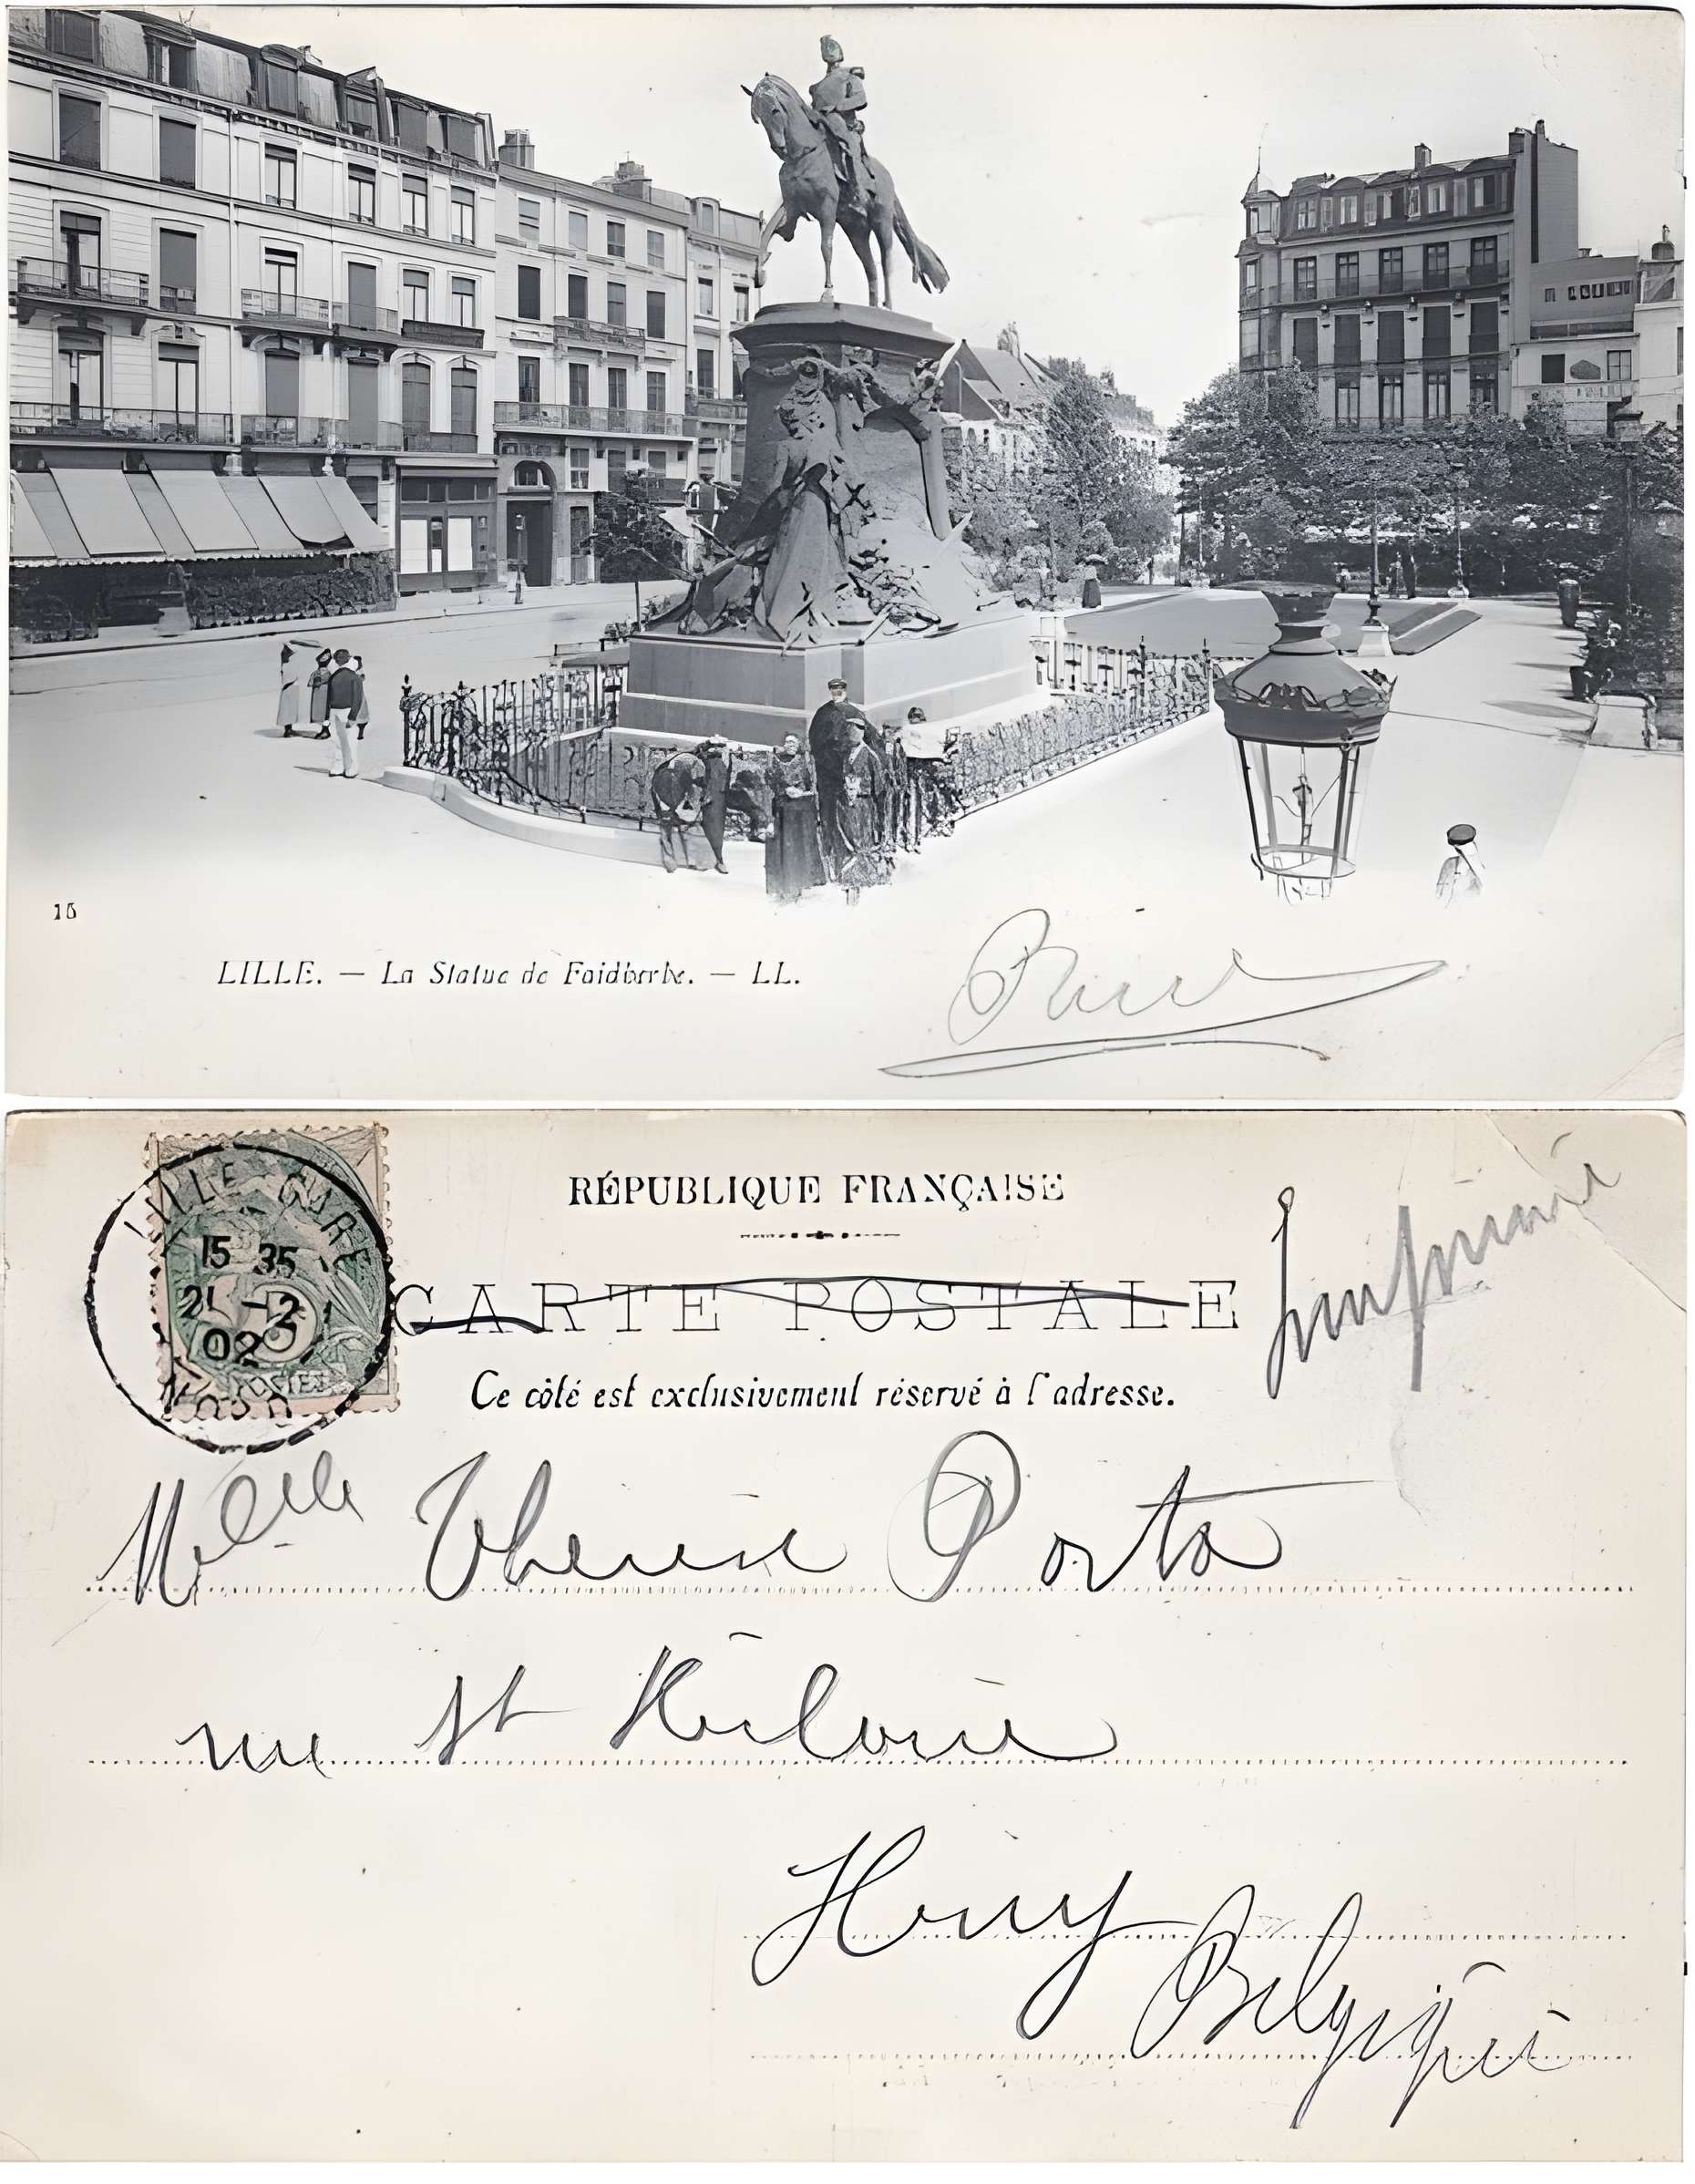 15
LILLE. — La Statue de Faidherbe. — LL.
RÉPUBLIQUE FRANÇAISE
CARTE POSTALE
Imprimé
Ce côté est exclusivement réservé à l'adresse.
LILLE GARE
15 35
21 -2
02
NORD
POSTES
Melle Thérèse Porta
rue St
Huy
Belgique